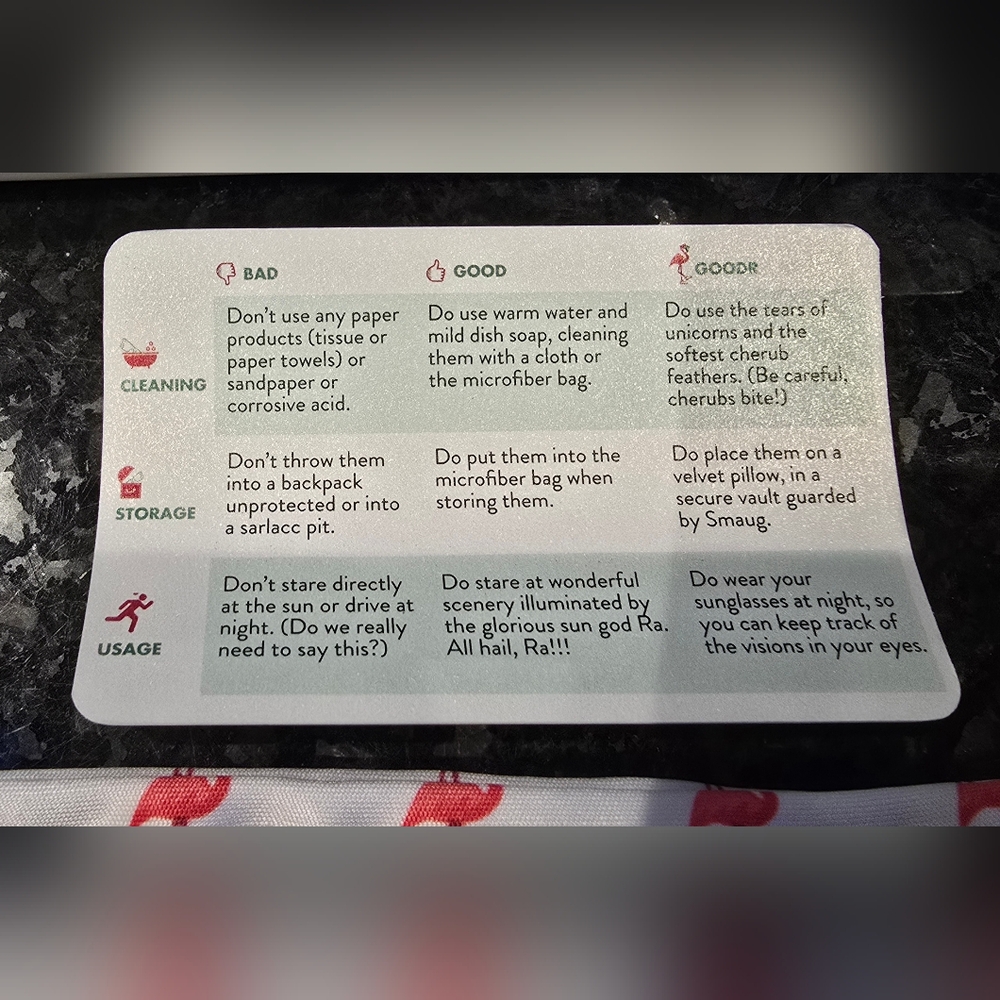 BAD
GOOD
GOODR
CLEANING
Don't use any paper
products (tissue or
paper towels) or
sandpaper or
corrosive acid.
Do use warm water and
mild dish soap, cleaning
them with a cloth or
the microfiber bag.
Do use the tears of
unicorns and the
softest cherub
feathers. (Be careful,
cherubs bite!)
STORAGE
Don't throw them
into a backpack
unprotected or into
a sarlacc pit.
Do put them into the
microfiber bag when
storing them.
Do place them on a
velvet pillow, in a
secure vault guarded
by Smaug.
USAGE
Don't stare directly
at the sun or drive at
night. (Do we really
need to say this?)
Do stare at wonderful
scenery illuminated by
the glorious sun god Ra.
All hail, Ra!!!
Do wear your
sunglasses at night, so
you can keep track of
the visions in your eyes.